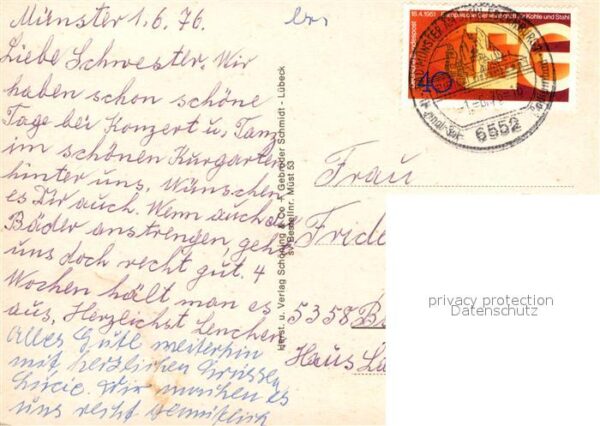 Münster 1.6.76.
Liebe Schwester. Wir
haben schon schöne
Tage bei Konzert u. Tanz
im schönen Kurgarten
hinter uns. Wünschen
es Dir auch. Wenn auch die
Bäder anstrengen, geht
uns doch recht gut. 4
Wochen hält man es
aus. Herzlichst Lenchen
Alles Gute weiterhin
mit herzlichen Grüssen
Wir machen es
uns recht gemütlich
Herst. u. Verlag Schöning & Co + Gebrüder Schmidt - Lübeck
Bestellnr. Müst 53
18.4.1951 Europäische Gemeinschaft für Kohle und Stahl
40
MÜNSTER
6552
Frau
Friede
5358 B
Haus La
privacy protection
Datenschutz